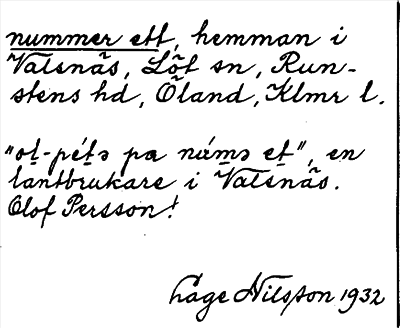 nummer ett, hemman i
Valsnäs, Löt sn, Run-
stens hd, Öland, Klmr l.
"ol̠-pét̠ə pa námə et̠", en
lantbrukare i Valsnäs.
Olof Persson!
Åge Nilsson 1932